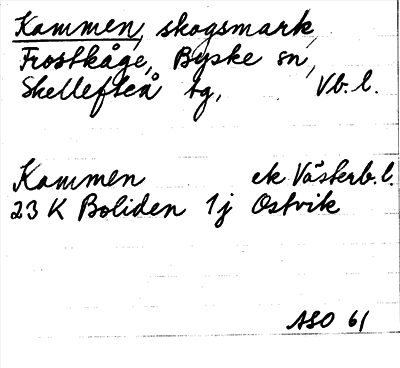 Kammen, skogsmark,
Frostkåge, Byske sn,
Skellefteå tg, Vb.l.
Kammen ek Västerb.l.
23 K Boliden 1j Ostvik
ASO 61